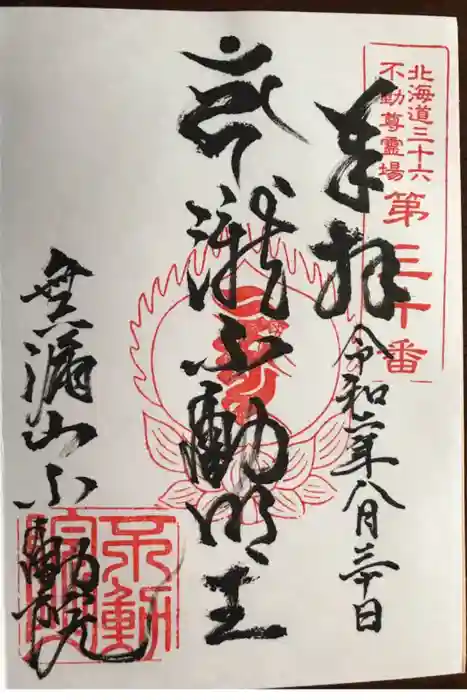 北海道三十六
不動尊靈場
第三十番
奉拝
令和二年八月三十日
瀧不動明王
無漏山不動院
不動